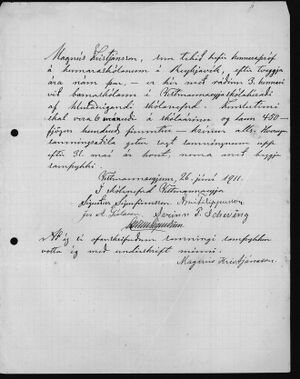 Magnús Kristjánsson, sem tekið hefir kennarapróf
á kennaraskólanum í Reykjavík, eftir tveggja
ára nám þar, – er hér með ráðinn 3. kennari
við barnaskólann í Vestmannaeyjaskólahéraði
af hlutaðeigandi skólanefnd. Kenslutími
skal vera 6 mánuði á skólaárinu og kaup 450 –
fjögur hundruð fimmtíu – krónur alls. Hvorugur
samningsaðila getur sagt samningnum upp
eftir 31. maí ár hvert, nema með hins
samþykki.
Vestmannaeyjum, 26. júní 1911.
Í skólanefnd Vestmannaeyja
Sigurður Sigurfinnsson Árni Filippusson
Jes A. Gíslason Sveinn P. Scheving
Að ég er ofanskráðum samningi samþykkur
votta ég með undirskrift minni.
Magnús Kristjánsson